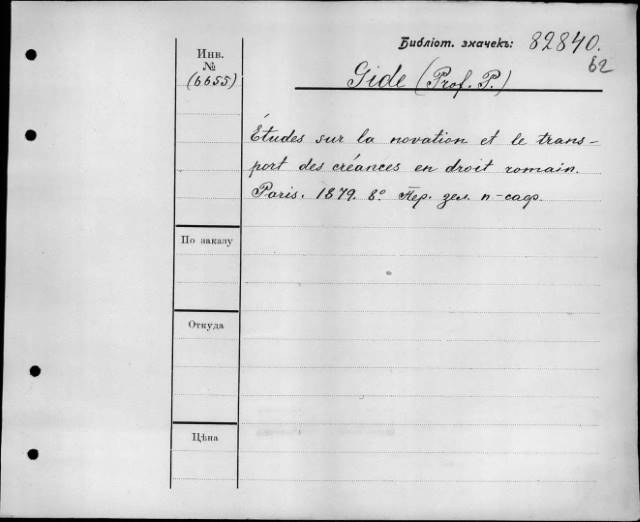 Библіот. значекъ: 82840.
62
Инв.
№
(6655)
Gide (Prof. P.)
Études sur la novation et le trans-
port des créances en droit romain.
Paris. 1879. 8º. Пер. зел. п-сафр.
По заказу
Откуда
Цѣна